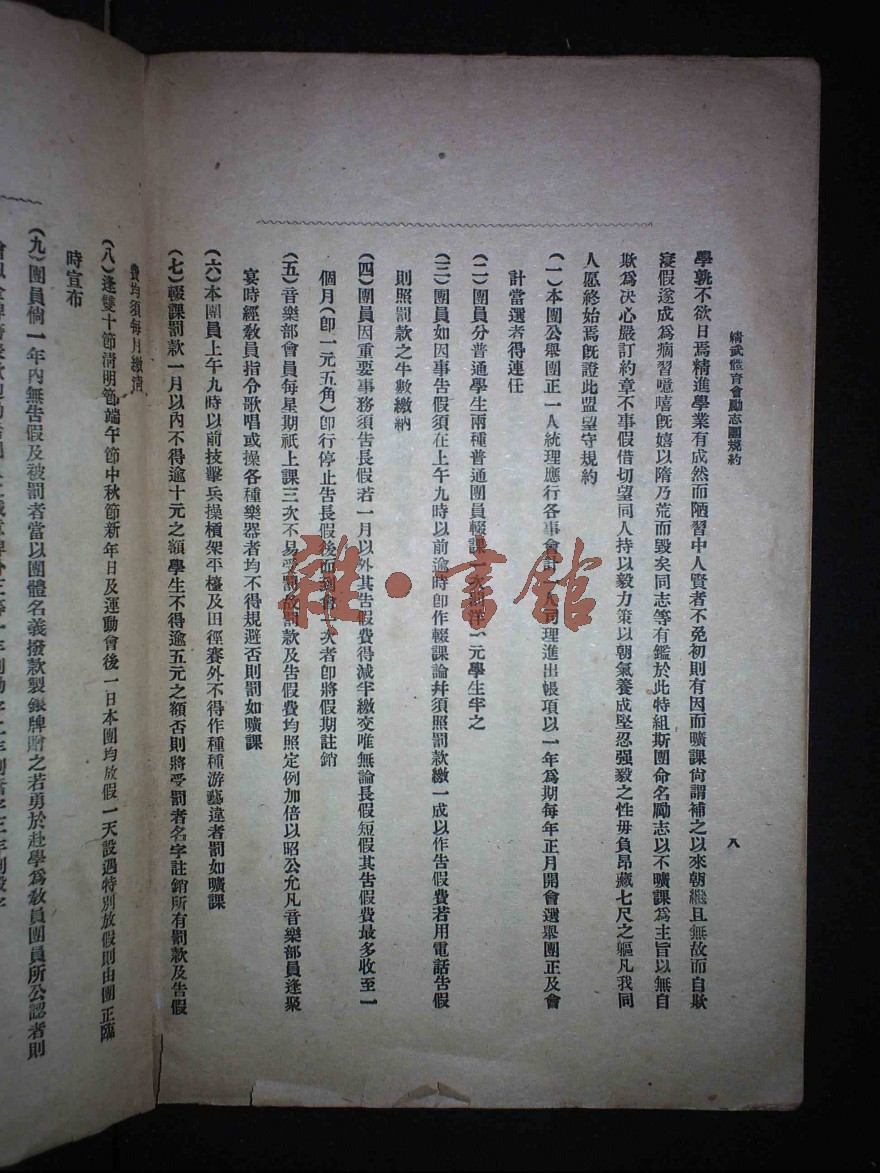 精武體育會勵志團規約
八
學孰不欲日焉精進學業有成然而陋習中人賢者不免初則有因而曠課尙謂補之以來朝繼且無故而自欺
寖假遂成爲痼習噫嘻旣嬉以隋乃荒而毀矣同志等有鑑於此特組斯團命名勵志以不曠課爲主旨以無自
欺爲決心嚴訂約章不事假借切望同人持以毅力策以朝氣養成堅忍强毅之性毋負昂藏七尺之軀凡我同
人愿終始焉旣證此盟望守規約
(一)本團公舉團正一人統理應行各事會計一人司理進出帳項以一年爲期每年正月開會選舉團正及會
計當選者得連任
(二)團員分普通學生兩種普通團員輟課一次罰洋一元學生半之
(三)團員如因事告假須在上午九時以前逾時卽作輟課論幷須照罰款繳一成以作告假費若用電話告假
則照罰款之半數繳納
(四)團員因重要事務須告長假若一月以外其告假費得減半繳交唯無論長假短假其告假費最多收至一
個月(卽一元五角)卽行停止告長假後而到會一次者卽將假期註銷
(五)音樂部會員每星期祇上課三次不易受罰故罰款及告假費均照定例加倍以昭公允凡音樂部員逢聚
宴時經敎員指令歌唱或操各種樂器者均不得規避否則罰如曠課
(六)本團員上午九時以前技擊兵操槓架平檯及田徑賽外不得作種種游藝違者罰如曠課
(七)輟課罰款一月以內不得逾十元之額學生不得逾五元之額否則將受罰者名字註銷所有罰款及告假
費均須每月繳淸
(八)逢雙十節淸明節端午節中秋節新年日及運動會後一日本團均放假一天設遇特別放假則由團正臨
時宣布
(九)團員倘一年內無告假及被罰者當以團體名義撥款製銀牌贈之若勇於赴學爲敎員團員所公認者則
雜·書館